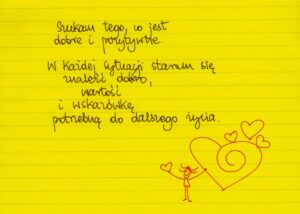 Szukam tego, co jest
dobre i pozytywne.
W każdej sytuacji staram się
znaleźć dobro,
wartość
i wskazówkę
potrzebną do dalszego życia.